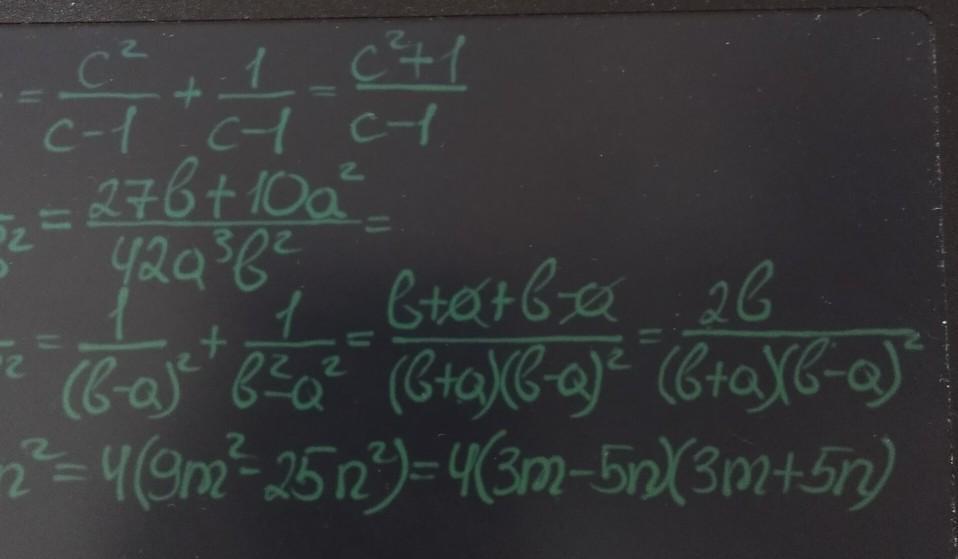 = c²/(c-1) + 1/(c-1) = (c²+1)/(c-1)
= (27b+10a²)/(42a³b²) =
= 1/(b-a)² + 1/(b²-a²) = (b+a+b-a)/((b+a)(b-a)²) = 2b/((b+a)(b-a)²)
n² = 4(9m²-25n²) = 4(3m-5n)(3m+5n)